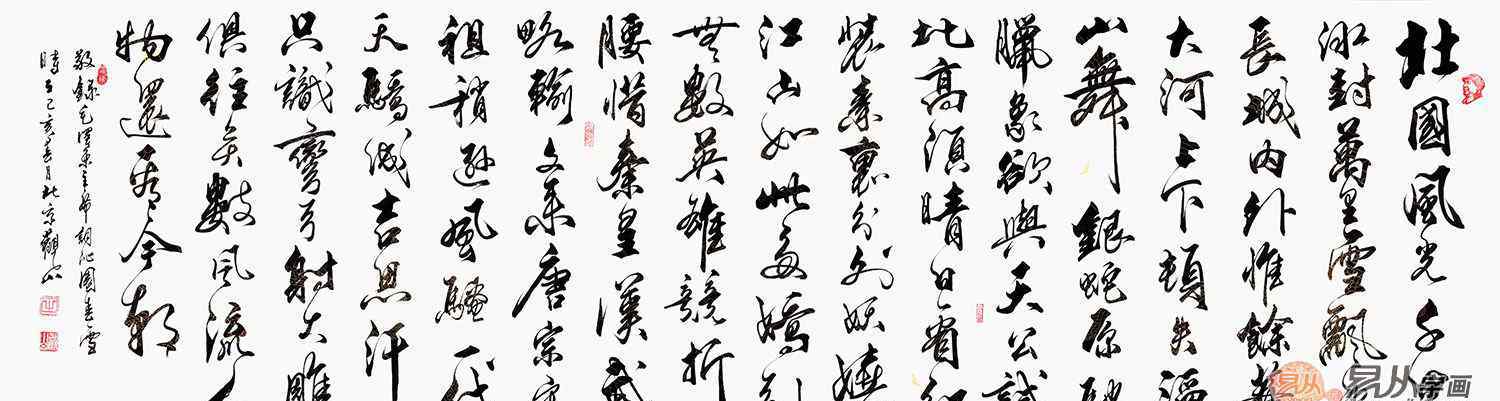 北國風光千
冰封萬里雪飄
長城內外惟餘莽
大河上下頓失滔
山舞銀蛇原馳
臘象欲與天公試
比高須晴日看紅
裝素裹分外妖嬈
江山如此多嬌引
無數英雄競折
腰惜秦皇漢武
略輸文采唐宗宋
祖稍遜風騷一代
天驕成吉思汗
只識彎弓射大雕
俱往矣數風流人
物還看今朝
敬錄毛澤東主席詞沁園春雪
時在己亥春月北京觀山
易从
易从字画